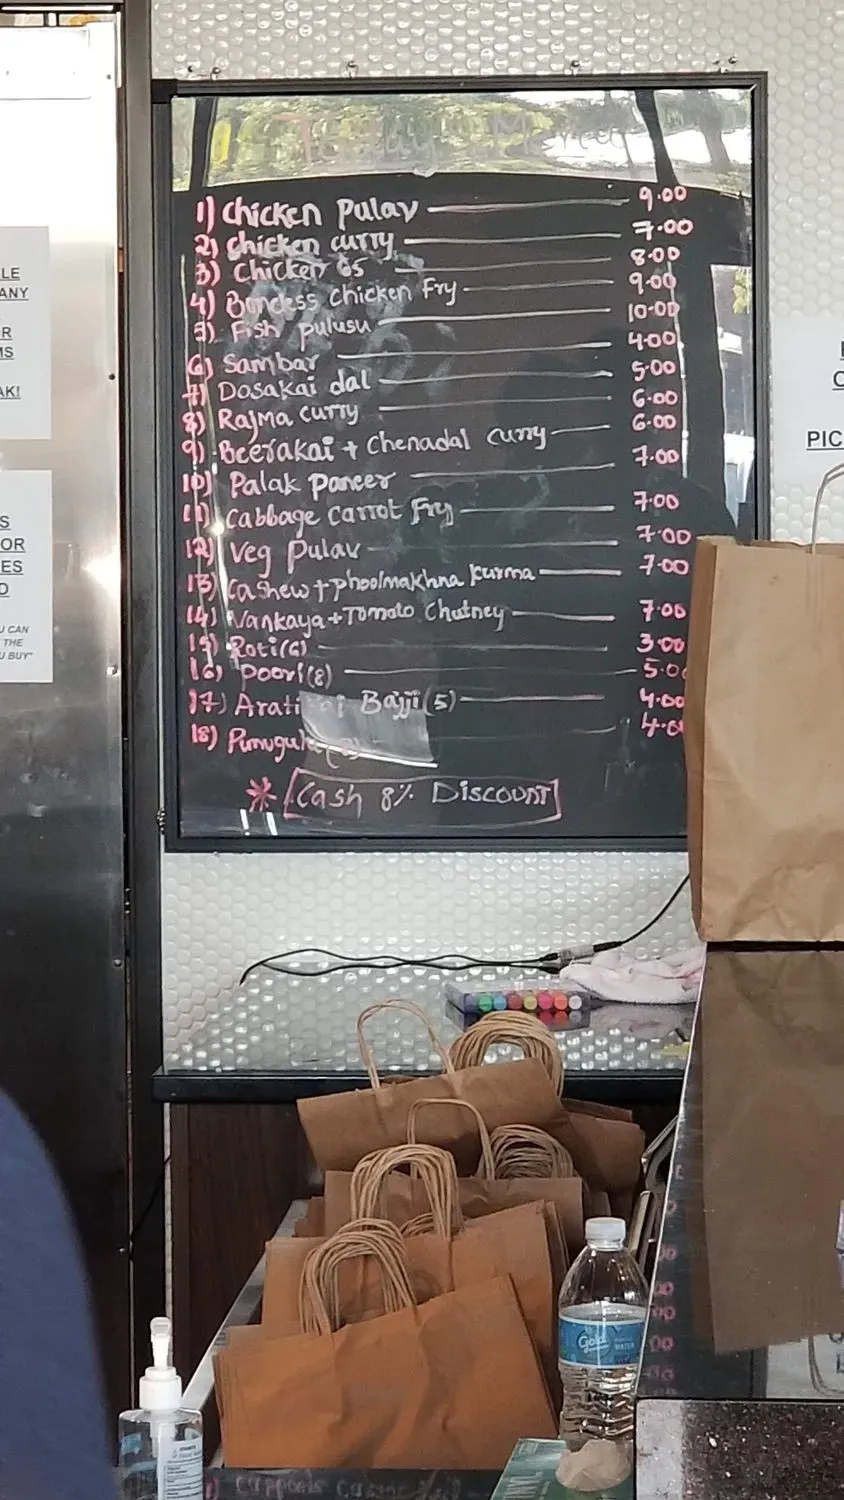 Today's Menu
1) Chicken Pulav 9.00
2) Chicken curry 7.00
3) Chicken 65 8.00
4) Boneless Chicken Fry 9.00
5) Fish pulusu 10.00
6) Sambar 4.00
7) Dosakai dal 5.00
8) Rajma curry 6.00
9) Beerakai + Chenadal curry 6.00
10) Palak Paneer 7.00
11) Cabbage Carrot Fry 7.00
12) Veg Pulav 7.00
13) Cashew + phoolmakhna kurma 7.00
14) Vankaya + Tomato Chutney 7.00
15) Roti (6) 3.00
16) Poori (8) 5.00
17) Bajji (5) 4.00
18) 4.00
* Cash 8% DISCOUNT
LE
ANY
R
MS
AK!
S
OR
ES
D
U CAN
THE
U BUY"
PIC
Gold
WATER